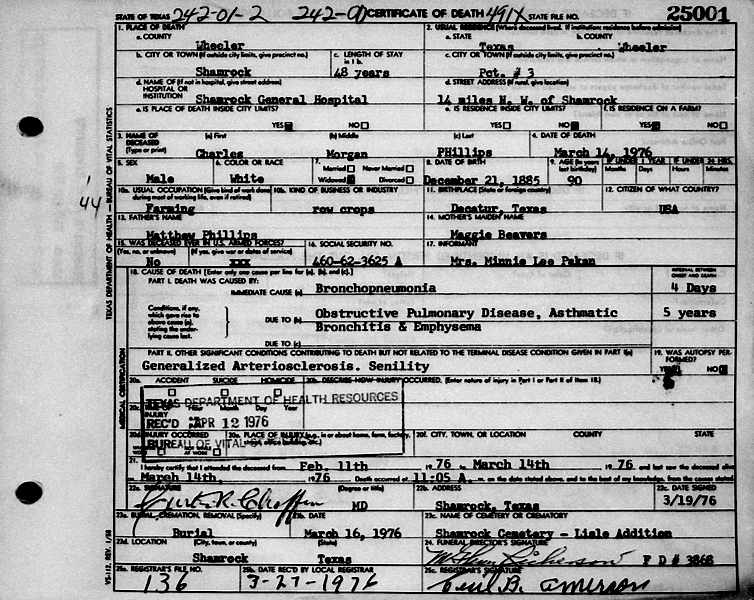 STATE OF TEXAS 242-01-2 242-01 CERTIFICATE OF DEATH 491X STATE FILE NO. 25001
1. PLACE OF DEATH
2. USUAL RESIDENCE (Where deceased lived. If institution: residence before admission)
a. COUNTY Wheeler
a. STATE Texas b. COUNTY Wheeler
b. CITY OR TOWN (If outside city limits, give precinct no.) Shamrock
c. LENGTH OF STAY in 1 b. 48 years
c. CITY OR TOWN (If outside city limits, give precinct no.) Pct. # 3
d. NAME OF (If not in hospital, give street address) HOSPITAL OR INSTITUTION Shamrock General Hospital
d. STREET ADDRESS (If rural, give location) 14 miles N. W. of Shamrock
e. IS PLACE OF DEATH INSIDE CITY LIMITS? YES NO
e. IS RESIDENCE INSIDE CITY LIMITS? YES NO
f. IS RESIDENCE ON A FARM? YES NO
3. NAME OF DECEASED (Type or print) (a) First Charles (b) Middle Morgan (c) Last PHillips
4. DATE OF DEATH March 14, 1976
5. SEX Male
6. COLOR OR RACE White
7. Married Never Married Widowed Divorced
8. DATE OF BIRTH December 21, 1885
9. AGE (In years last birthday) 90
IF UNDER 1 YEAR Months Days
IF UNDER 24 HRS. Hours Minutes
10a. USUAL OCCUPATION (Give kind of work done during most of working life, even if retired) Farming
10b. KIND OF BUSINESS OR INDUSTRY row crops
11. BIRTHPLACE (State or foreign country) Decatur, Texas
12. CITIZEN OF WHAT COUNTRY? USA
13. FATHER'S NAME Matthew Phillips
14. MOTHER'S MAIDEN NAME Maggie Beavers
15. WAS DECEASED EVER IN U.S. ARMED FORCES? (Yes, no, or unknown) No (If yes, give war or dates of service) xxx
16. SOCIAL SECURITY NO. 460-62-3625 A
17. INFORMANT Mrs. Minnie Lee Pakan
18. CAUSE OF DEATH [Enter only one cause per line for (a), (b), and (c).]
INTERVAL BETWEEN ONSET AND DEATH
PART I. DEATH WAS CAUSED BY:
IMMEDIATE CAUSE (a) Bronchopneumonia 4 Days
Conditions, if any, which gave rise to above cause (a), stating the underlying cause last.
DUE TO (b) Obstructive Pulmonary Disease, Asthmatic 5 years
Bronchitis & Emphysema
DUE TO (c)
PART II. OTHER SIGNIFICANT CONDITIONS CONTRIBUTING TO DEATH BUT NOT RELATED TO THE TERMINAL DISEASE CONDITION GIVEN IN PART I(a)
19. WAS AUTOPSY PERFORMED? YES NO
Generalized Arteriosclerosis. Senility
20a. ACCIDENT SUICIDE HOMICIDE
20b. DESCRIBE HOW INJURY OCCURRED. (Enter nature of injury in Part I or Part II of Item 18.)
TEXAS DEPARTMENT OF HEALTH RESOURCES
20c. INJURY Hour Month Day Year
REC'D APR 12 1976
20d. INJURY OCCURRED
20e. PLACE OF INJURY (e.g. in or about home, farm, factory, office building, etc.)
20f. CITY, TOWN, OR LOCATION COUNTY STATE
BUREAU OF VITAL
AT WORK
21. I hereby certify that I attended the deceased from Feb. 11th 1976 to March 14th 1976 and last saw the deceased alive
on March 14th. 1976 Death occurred at 11:05 A. m. on the date stated above, and to the best of my knowledge, from the causes stated
22a. SIGNATURE (Degree or title) MD
22b. ADDRESS Shamrock, Texas
22c. DATE SIGNED 3/19/76
23a. BURIAL, CREMATION, REMOVAL (Specify) Burial
23b. DATE March 16, 1976
23c. NAME OF CEMETERY OR CREMATORY Shamrock Cemetery - Lisle Addition
23d. LOCATION (City, town, or county) Shamrock (State) Texas
24. FUNERAL DIRECTOR'S SIGNATURE F D # 3868
25a. REGISTRAR'S FILE NO. 136
25b. DATE REC'D BY LOCAL REGISTRAR 3-27-1976
25c. REGISTRAR'S SIGNATURE Cecil B. Emerson
TEXAS DEPARTMENT OF HEALTH — BUREAU OF VITAL STATISTICS
MEDICAL CERTIFICATION
VS-112, REV. 1/58
44